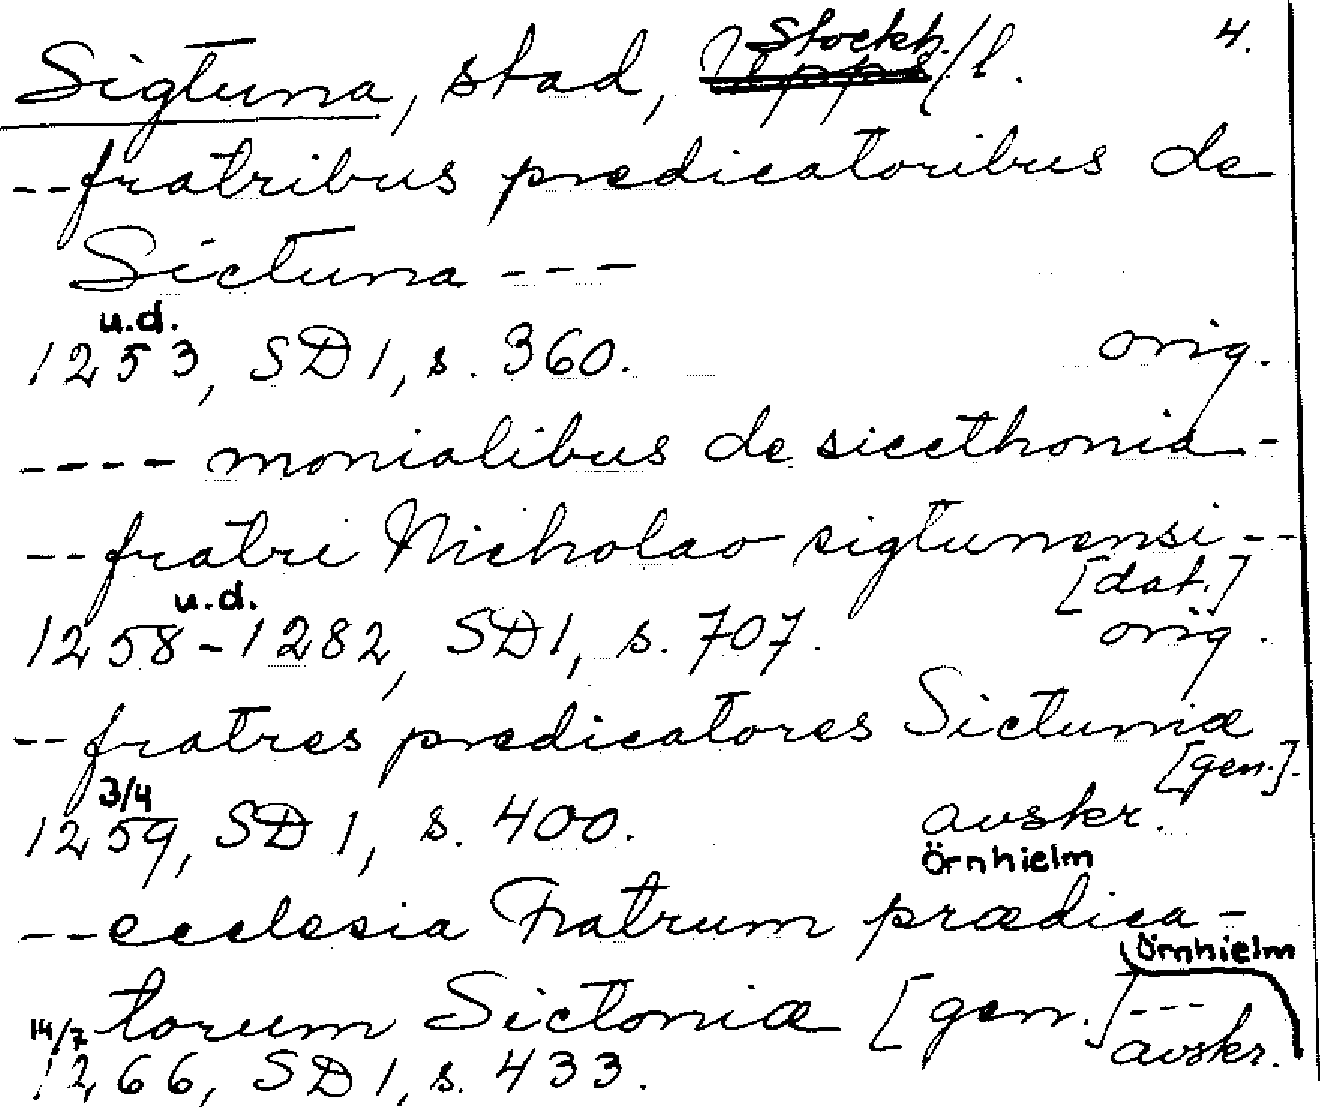 Sigtuna, stad, Stockh./l. 4.
--fratribus predicatoribus de
Sictuna ---
u.d.
1253, SD 1, s. 360. orig.
---- monialibus de sicethonia -
--fratri Nicholao sigtunensi --
[dat.]
u.d.
1258-1282, SD 1, s. 707. orig.
--fratres predicatores Sictuniæ
[gen.].
3/4
1259, SD 1, s. 400. avskr.
Örnhielm
--ecclesia Fratrum prædica-
Örnhielm
torum Sictoniæ [gen.]---
14/7
1266, SD 1, s. 433. avskr.